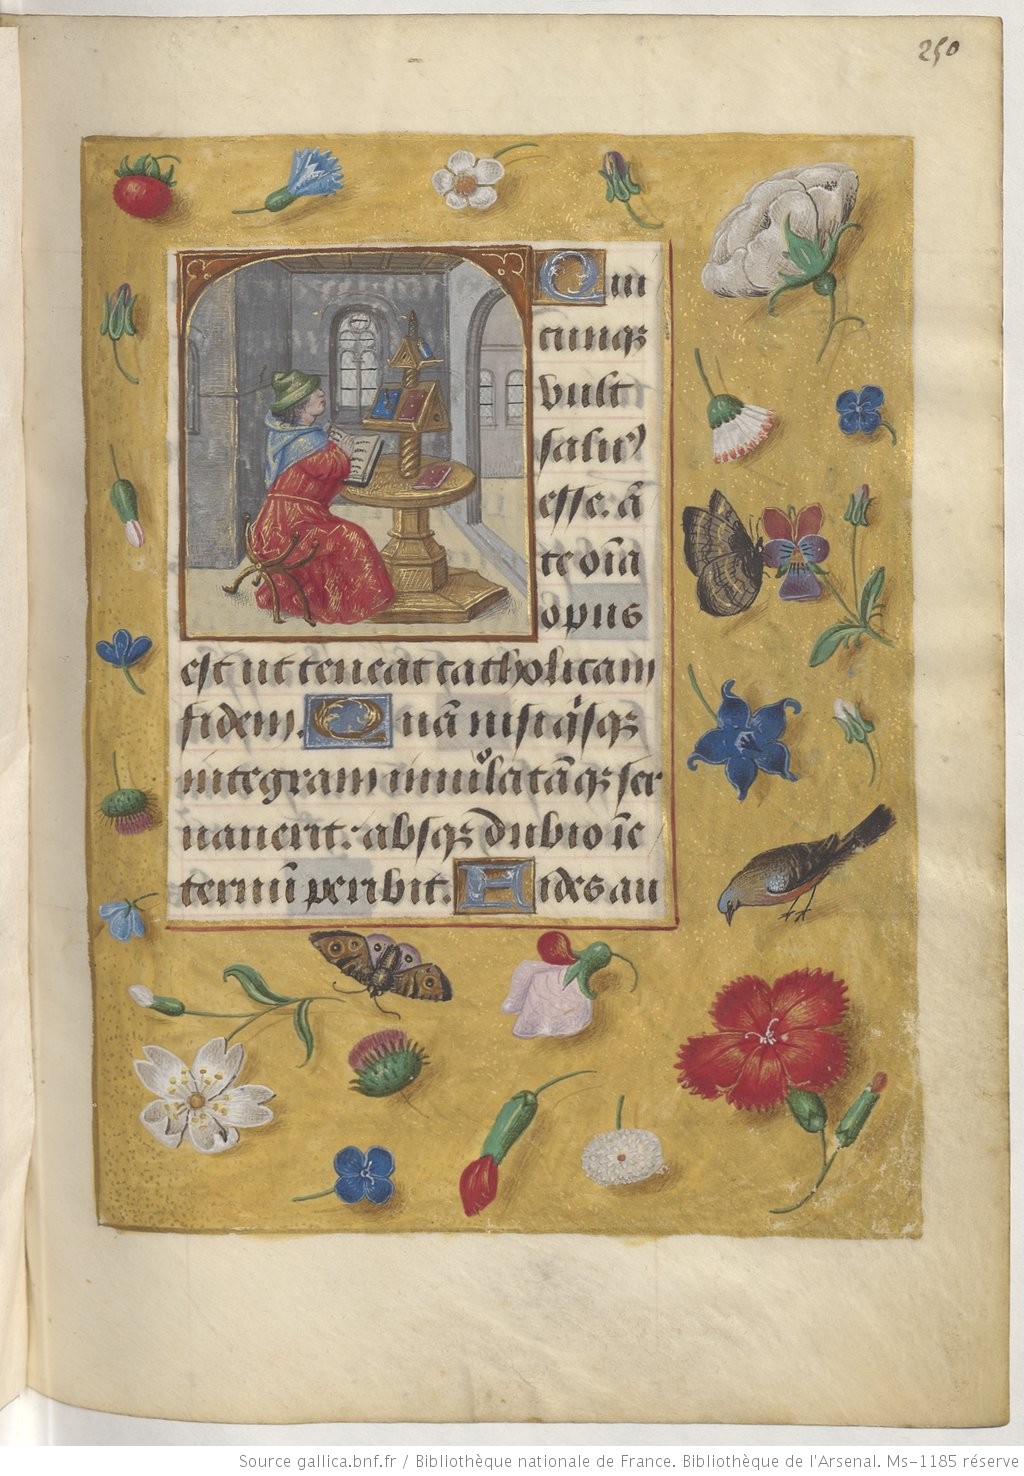 250
Qui
cunqꝫ
vult
saluꝰ
esse. ā
te oīa
opus
est ut teneat catholicam
fidem. Quā nisi qͥsqꝫ
integram inuiolatāqꝫ ser
uauerit: absqꝫ dubio īe
ternū peribit. Fides au
Source gallica.bnf.fr / Bibliothèque nationale de France. Bibliothèque de l'Arsenal. Ms-1185 réserve